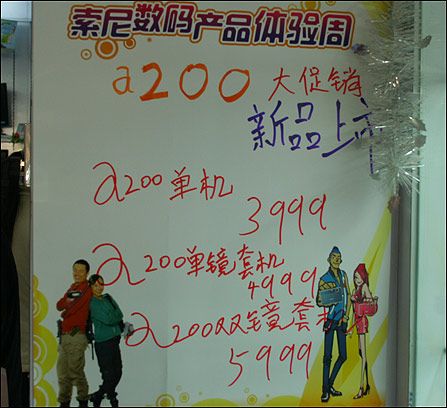 索尼数码产品体验周
a200 大促销
新品上市
a200单机
3999
a200单镜套机
4999
a200双镜套机
5999